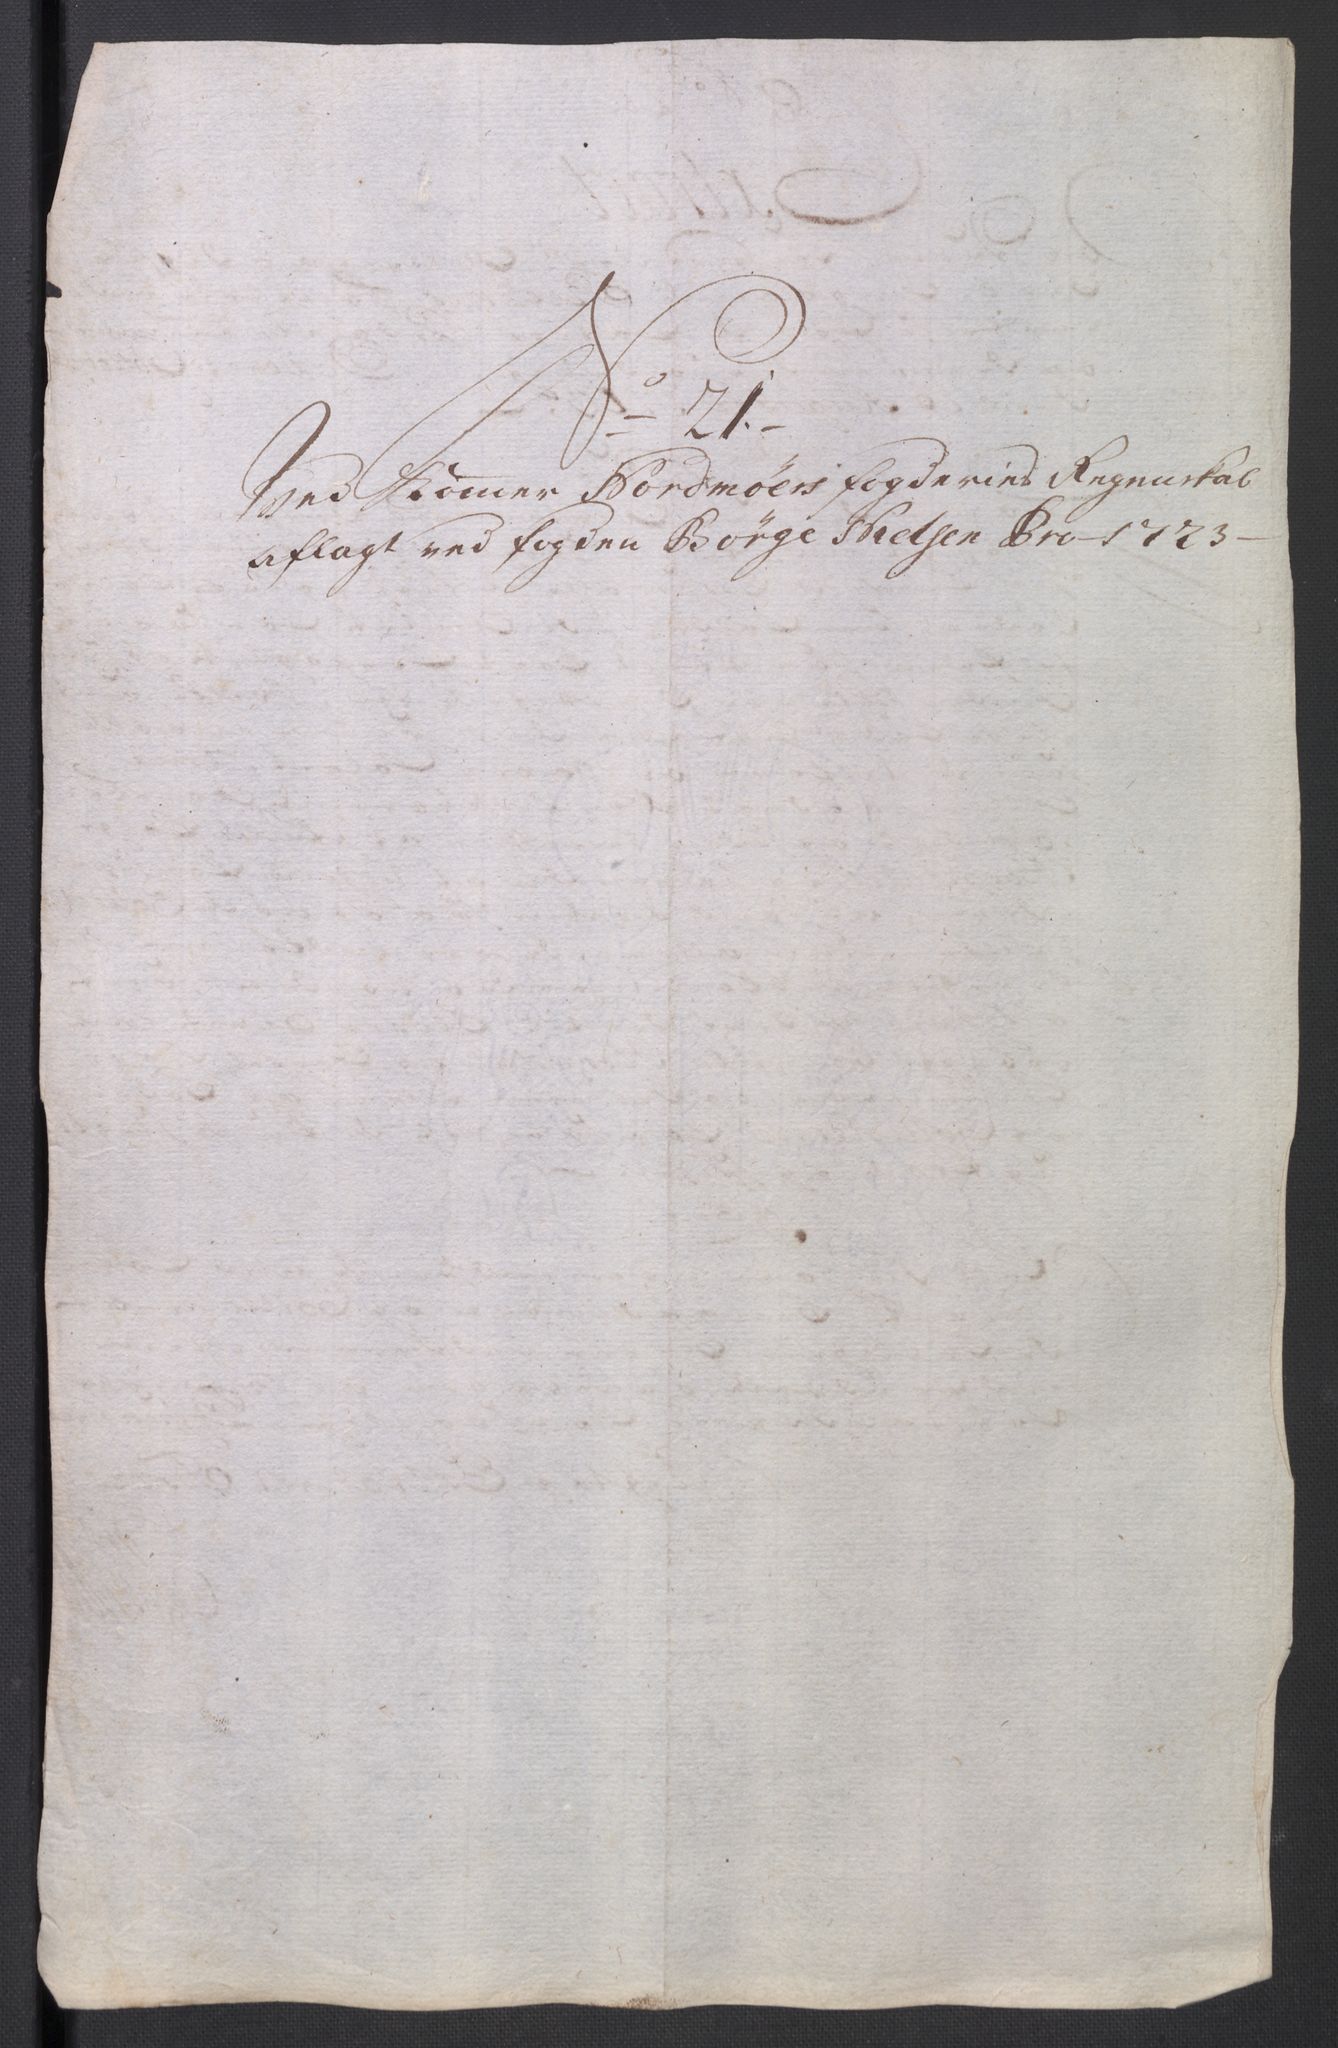 No 21.
Ved Kommer Nordmøers fogderies Regenskab
aflagt ved fogden Børge Nielsen Pro 1723